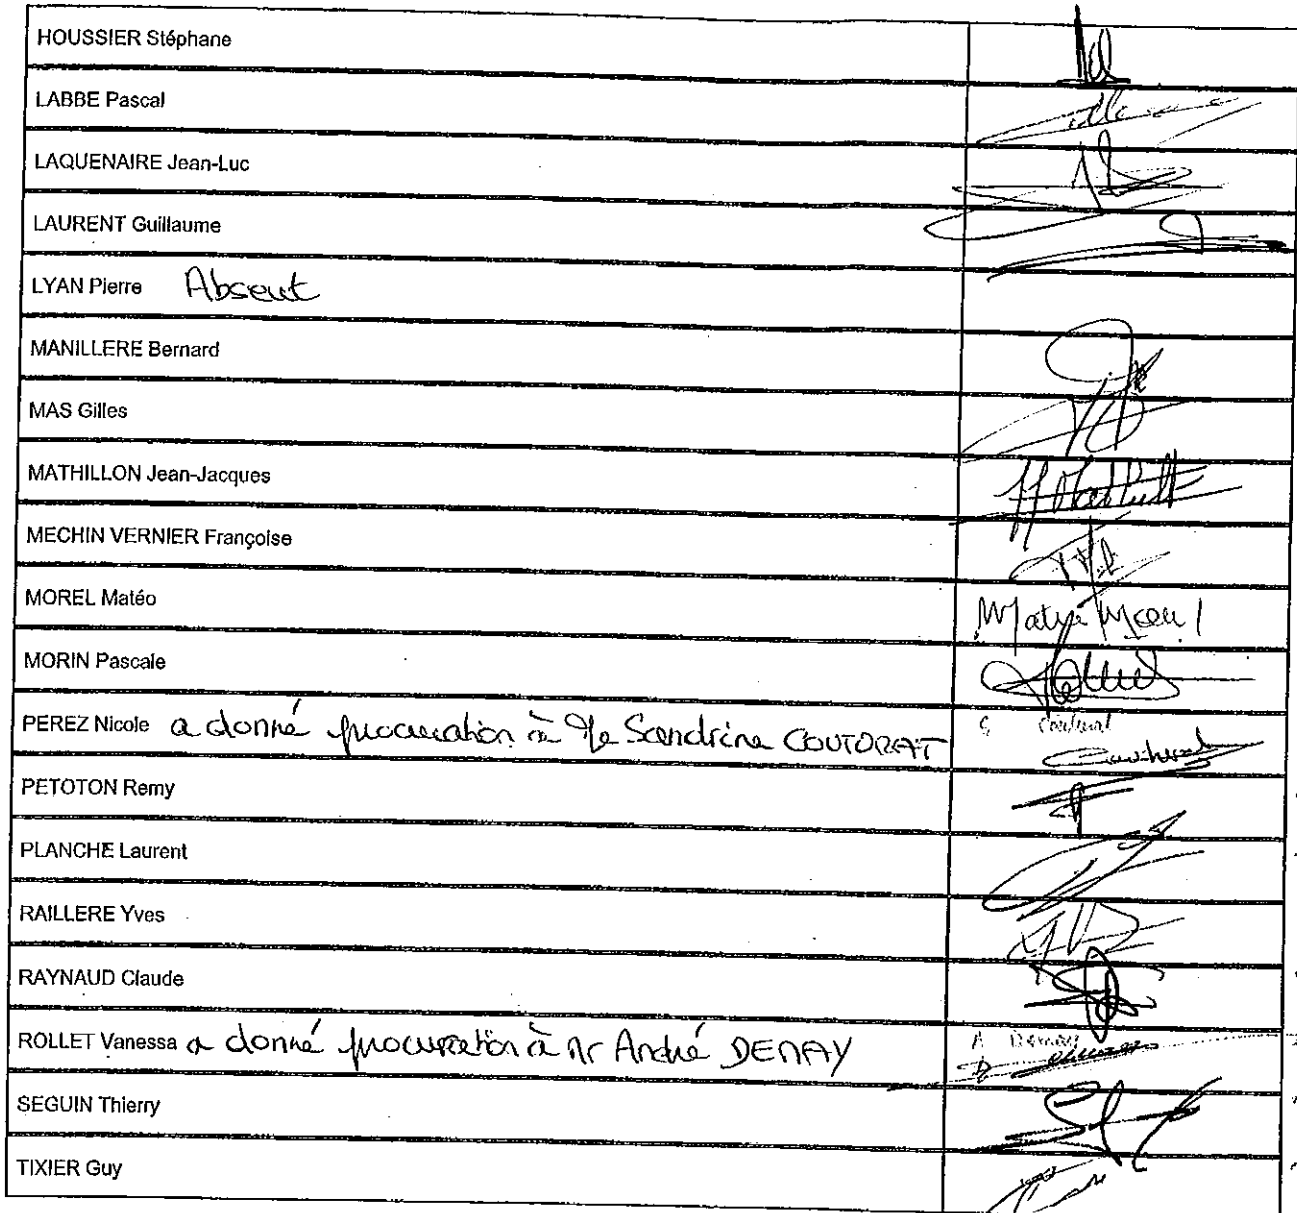 HOUSSIER Stéphane
LABBE Pascal
LAQUENAIRE Jean-Luc
LAURENT Guillaume
LYAN Pierre Absent
MANILLERE Bernard
MAS Gilles
MATHILLON Jean-Jacques
MECHIN VERNIER Françoise
MOREL Matéo
MORIN Pascale
PEREZ Nicole a donné procuration à Me Sandrine COUTORAT
PETOTON Remy
PLANCHE Laurent
RAILLERE Yves
RAYNAUD Claude
ROLLET Vanessa a donné procuration à Mr André DEMAY A Demay
SEGUIN Thierry
TIXIER Guy